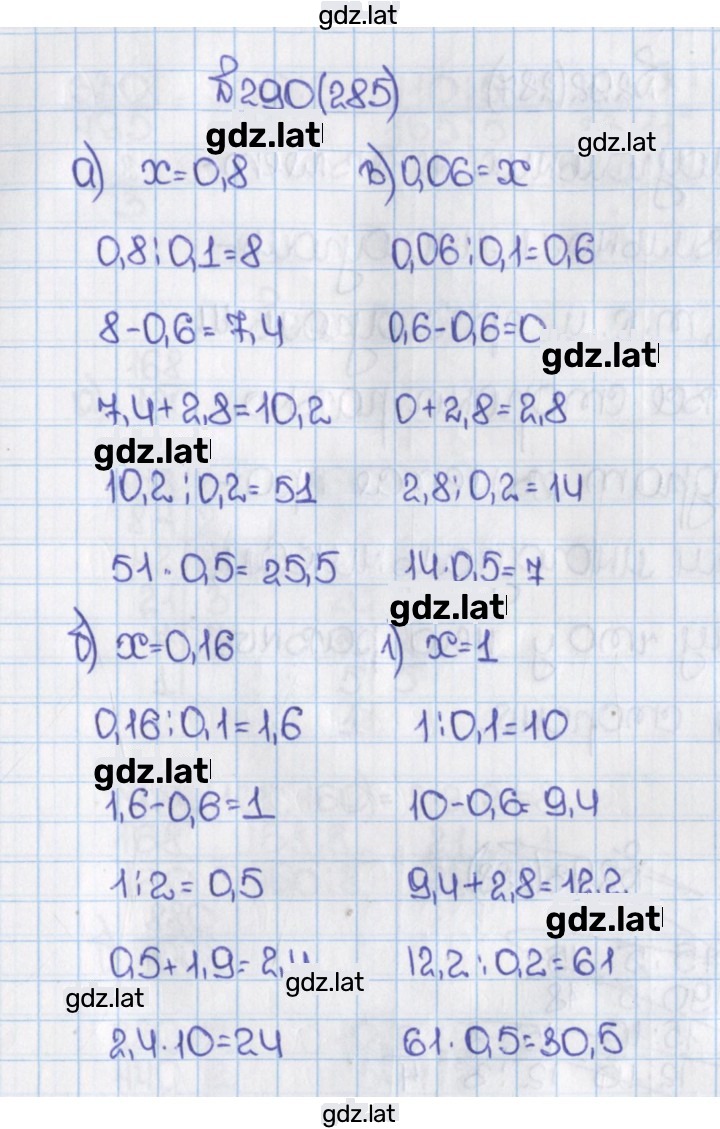 gdz.lat
№290(285)
gdz.lat
gdz.lat
а) x=0,8
0,8:0,1=8
8-0,6=7,4
7,4+2,8=10,2
gdz.lat
10,2:0,2=51
51·0,5=25,5
в) 0,06=x
0,06:0,1=0,6
0,6-0,6=0
gdz.lat
0+2,8=2,8
2,8:0,2=14
14·0,5=7
gdz.lat
б) x=0,16
0,16:0,1=1,6
gdz.lat
1,6-0,6=1
1:2=0,5
0,5+1,9=2,4
gdz.lat
gdz.lat
2,4·10=24
г) x=1
1:0,1=10
10-0,6=9,4
9,4+2,8=12,2
gdz.lat
12,2:0,2=61
61·0,5=30,5
gdz.lat